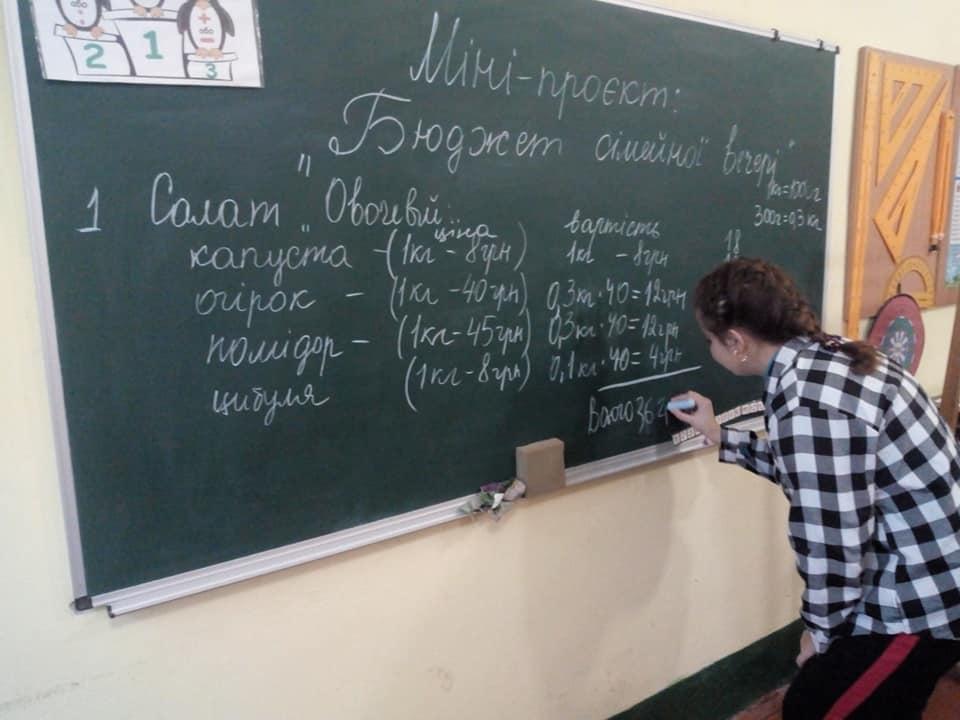 або
2 1 3
або
Міні-проєкт:
"Бюджет сімейної вечері"
1кг=1000г
300г=0,3 кг
1 Салат "Овочевий"
ціна вартість
капуста - (1кг - 8грн) 1кг - 8грн
огірок - (1кг - 40грн) 0,3кг·40=12грн
помідор - (1кг - 45грн) 0,3кг·40=12грн
цибуля (1кг - 8грн) 0,1кг·40=4грн
Всього 36 г
18